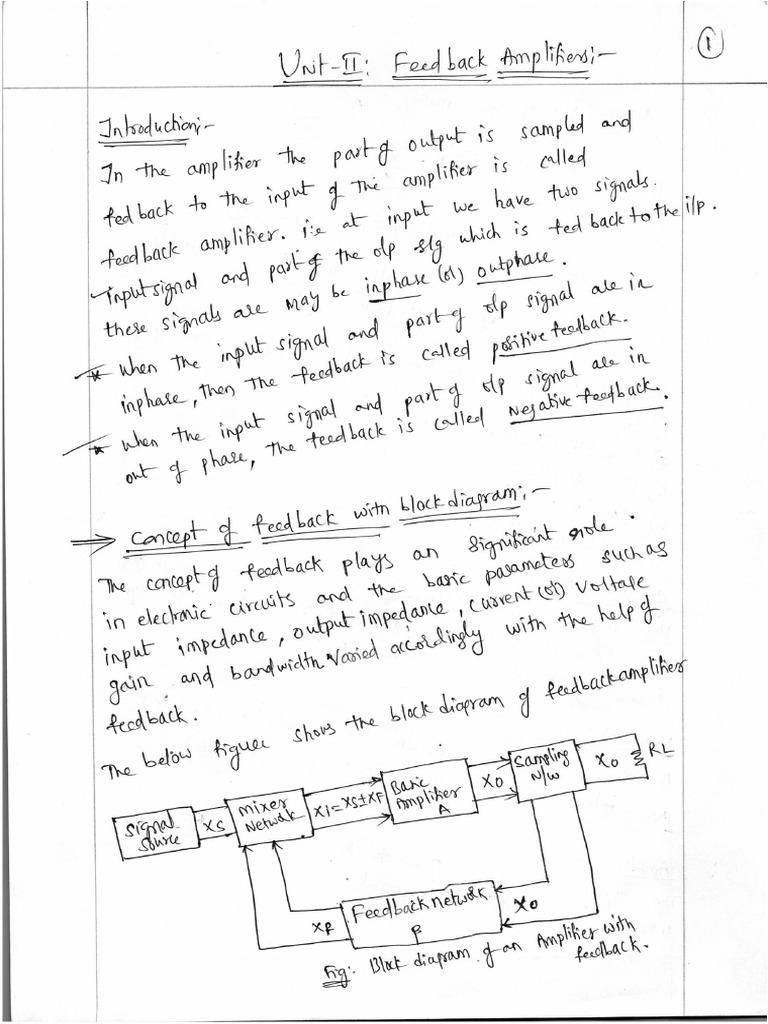 1
Unit-II: Feedback Amplifiers:-
Introduction:-
In the amplifier the part of output is sampled and
fedback to the input of the amplifier is called
feedback amplifier. i.e at input we have two signals.
input signal and part of the o/p s/g which is fed back to the i/p.
these signals are may be inphase (or) outphase.
* When the input signal and part of o/p signal are in
inphase, Then the feedback is called positive feedback.
* when the input signal and part of o/p signal are in
out of phase, the feedback is called Negative feedback.
⇒ Concept of feedback with block diagram:-
The concept of feedback plays an significant role.
in electronic circuits and the basic parameters such as
input impedance, output impedance, current (or) voltage
gain and bandwidth varied accordingly with the help of
feedback.
The below figure shows the block diagram of feedback amplifier
Signal source
XS
Mixer Network
Xi=XS±XF
Basic Amplifier A
XO
Sampling N/W
XO
RL
Feedback network β
XF
XO
Fig: Block diagram of an Amplifier with
feedback.